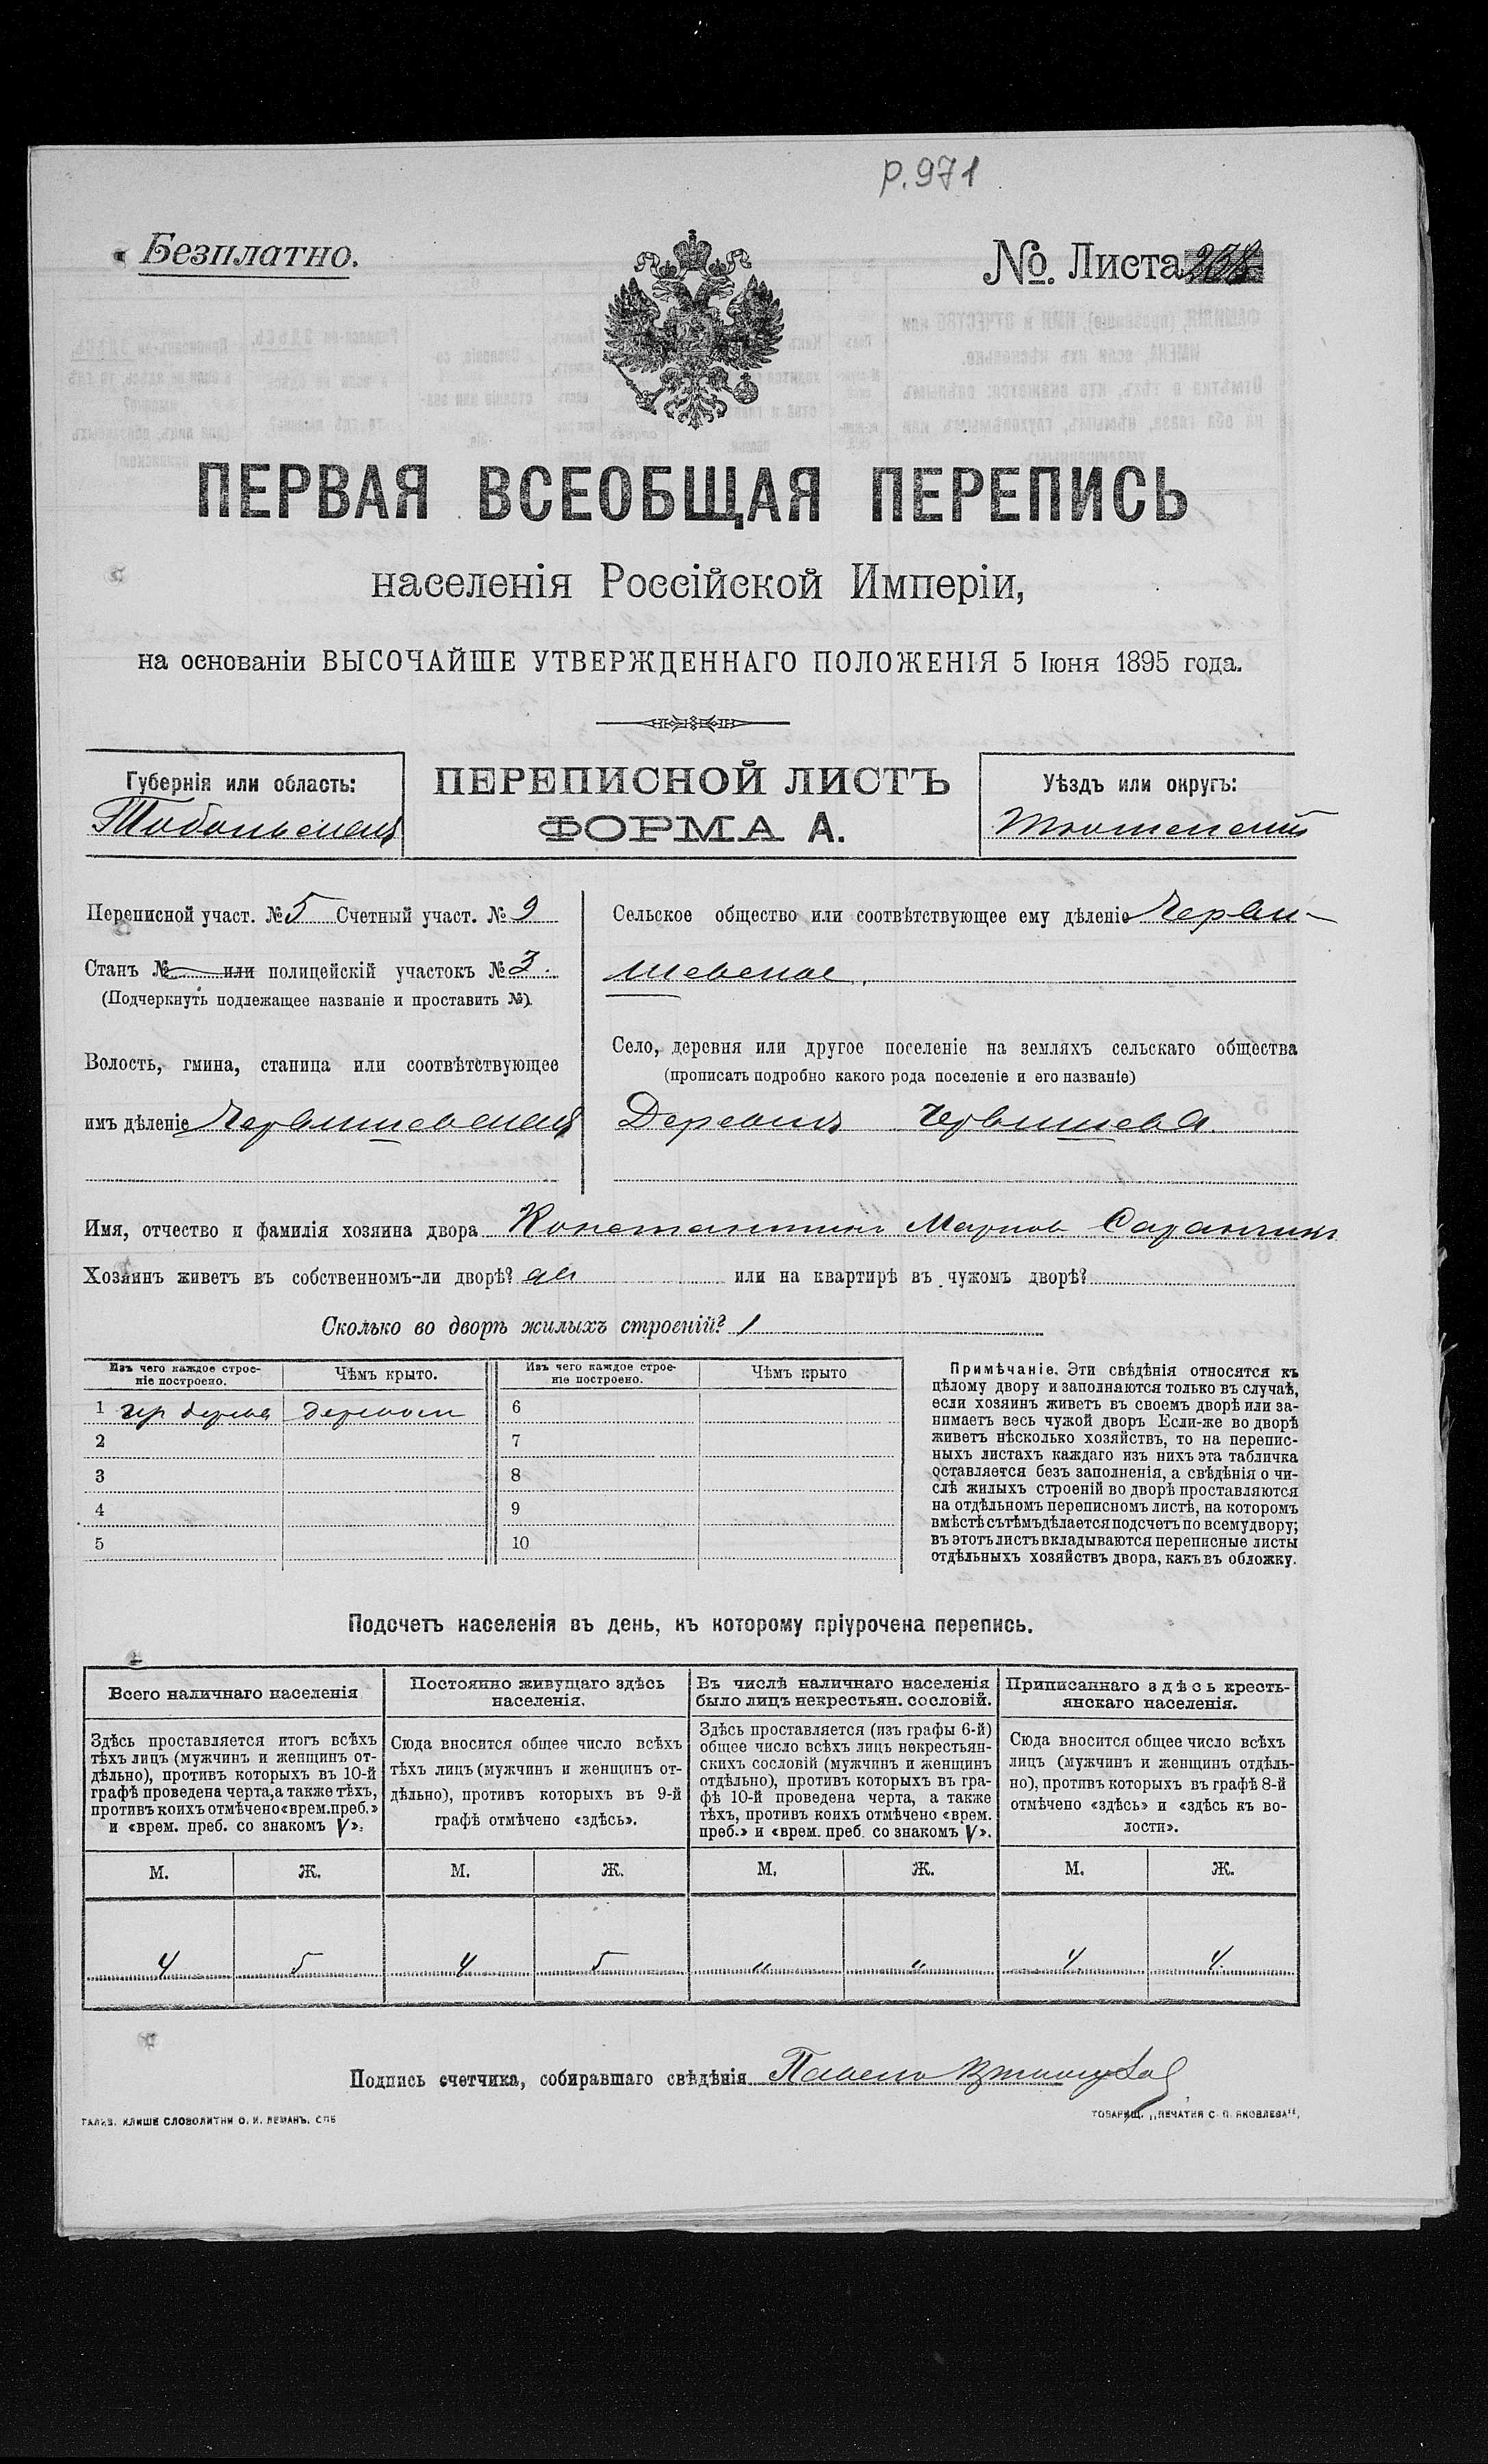 р. 971
Безплатно.
№. Листа 238
ПЕРВАЯ ВСЕОБЩАЯ ПЕРЕПИСЬ
населенія Россійской Имперіи,
на основаніи ВЫСОЧАЙШЕ УТВЕРЖДЕННАГО ПОЛОЖЕНІЯ 5 Іюня 1895 года.
Губернія или область:
Тобольская
ПЕРЕПИСНОЙ ЛИСТЪ
ФОРМА А.
Уѣздъ или округъ:
Тюменский
Переписной участ. № 5 Счетный участ. № 9
Станъ № или полицейскій участокъ № 3.
(Подчеркнуть подлежащее названіе и проставить №)
Волость, гмина, станица или соотвѣтствующее
имъ дѣленіе Червишевская
Сельское общество или соотвѣтствующее ему дѣленіе Черви-
шевское
Село, деревня или другое поселеніе на земляхъ сельскаго общества
(прописать подробно какого рода поселеніе и его названіе)
Деревня Червишева
Имя, отчество и фамилія хозяина двора Константинъ Марковъ
Хозяинъ живетъ въ собственномъ-ли дворѣ? да или на квартирѣ въ чужомъ дворѣ?
Сколько во дворѣ жилыхъ строеній? 1
Изъ чего каждое строе-
ніе построено.
Чѣмъ крыто.
Изъ чего каждое строе-
ніе построено.
Чѣмъ крыто
1 изъ дерева деревом 6
2 7
3 8
4 9
5 10
Примѣчаніе. Эти свѣдѣнія относятся къ
цѣлому двору и заполняются только въ случаѣ,
если хозяинъ живетъ въ своемъ дворѣ или за-
нимаетъ весь чужой дворъ Если-же во дворѣ
живетъ нѣсколько хозяйствъ, то на перепис-
ныхъ листахъ каждаго изъ нихъ эта табличка
оставляется безъ заполненія, а свѣдѣнія о чи-
слѣ жилыхъ строеній во дворѣ проставляются
на отдѣльномъ переписномъ листѣ, на которомъ
вмѣстѣ сътѣмъ дѣлается подсчетъ по всему двору;
въ этотъ листъ вкладываются переписные листы
отдѣльныхъ хозяйствъ двора, какъ въ обложку.
Подсчетъ населенія въ день, къ которому пріурочена перепись.
Всего наличнаго населенія
Здѣсь проставляется итогъ всѣхъ
тѣхъ лицъ (мужчинъ и женщинъ от-
дѣльно), противъ которыхъ въ 10-й
графѣ проведена черта, а также тѣхъ,
противъ коихъ отмѣчено «врем. преб.»
и «врем. преб. со знакомъ V».
Постоянно живущаго здѣсь
населенія.
Сюда вносится общее число всѣхъ
тѣхъ лицъ (мужчинъ и женщинъ от-
дѣльно), противъ которыхъ въ 9-й
графѣ отмѣчено «здѣсь».
Въ числѣ наличнаго населенія
было лицъ некрестьян. сословій.
Здѣсь проставляется (изъ графы 6-й)
общее число всѣхъ лицъ некрестьян-
скихъ сословій (мужчинъ и женщинъ
отдѣльно), противъ которыхъ въ гра-
фѣ 10-й проведена черта, а также
тѣхъ, противъ коихъ отмѣчено «врем.
преб.» и «врем. преб. со знакомъ V».
Приписаннаго здѣсь кресть-
янскаго населенія.
Сюда вносится общее число всѣхъ
лицъ (мужчинъ и женщинъ отдѣль-
но), противъ которыхъ въ графѣ 8-й
отмѣчено «здѣсь» и «здѣсь къ во-
лости».
М. Ж. М. Ж. М. Ж. М. Ж.
4 5 4 5 " " 4 4
Подпись счетчика, собиравшаго свѣдѣнія Павелъ
ГАЛЬВ. КЛИШЕ СЛОВОЛИТНИ О. И. ЛЕМАНЪ. СПБ
ТОВАРИЩ. „ПЕЧАТНЯ С. П. ЯКОВЛЕВА“,